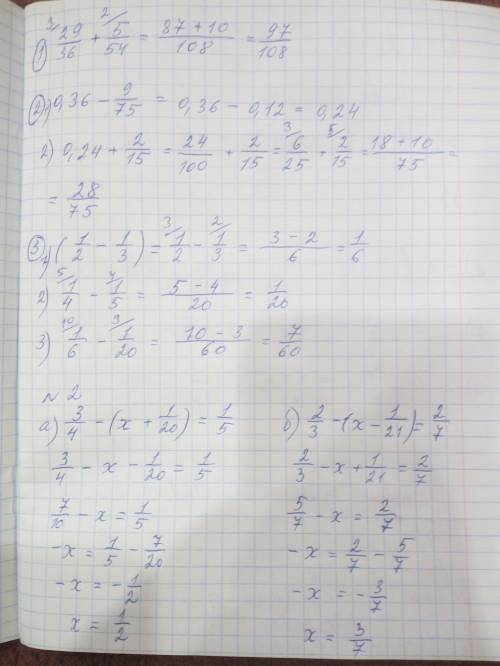 1) ³/29/36 + ²/5/54 = (87+10)/108 = 97/108
2) 1) 0,36 - 9/75 = 0,36 - 0,12 = 0,24
2) 0,24 + 2/15 = 24/100 + 2/15 = ³/6/25 + ⁵/2/15 = (18+10)/75 =
= 28/75
3) 1) (1/2 - 1/3) = ³/1/2 - ²/1/3 = (3-2)/6 = 1/6
2) ⁵/1/4 - ⁴/1/5 = (5-4)/20 = 1/20
3) ¹⁰/1/6 - ³/1/20 = (10-3)/60 = 7/60
№ 2
а) 3/4 - (x + 1/20) = 1/5
3/4 - x - 1/20 = 1/5
7/10 - x = 1/5
-x = 1/5 - 7/20
-x = -1/2
x = 1/2
б) 2/3 - (x - 1/21) = 2/7
2/3 - x + 1/21 = 2/7
5/7 - x = 2/7
-x = 2/7 - 5/7
-x = -3/7
x = 3/7